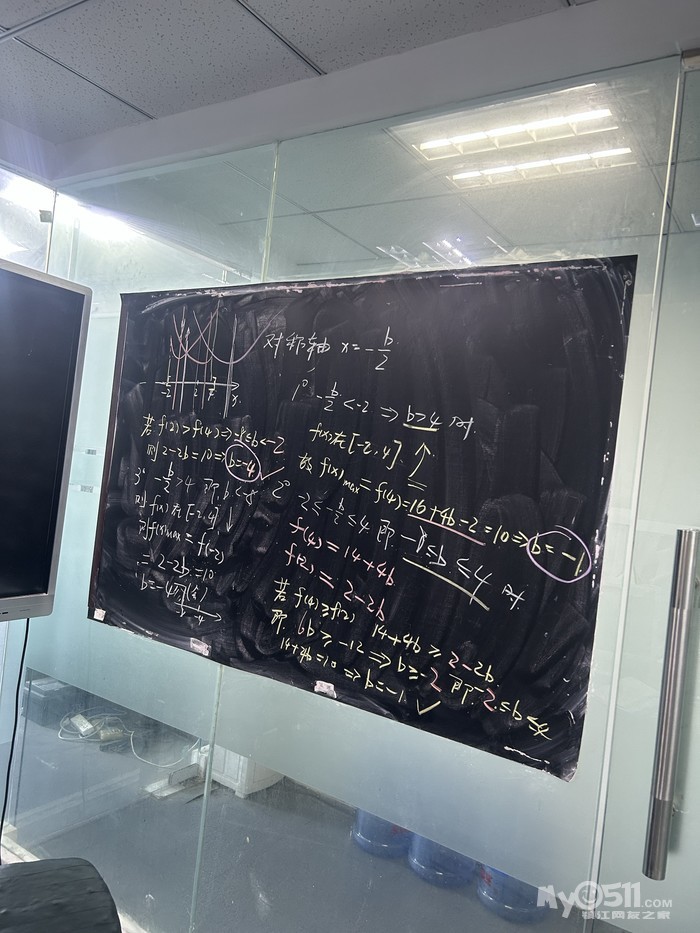 对称轴 x=-b/2
1° -b/2<-2 ⇒ b>4 时
f(x)在[-2,4] ↑
故 f(x)max=f(4)=16+4b-2=10 ⇒ b=-1
2° -2≤-b/2≤4 即 -8≤b≤4 时
f(4)=14+4b
f(2)=2-2b
若 f(4)≥f(2) 14+4b≥2-2b
即 6b≥-12 ⇒ b≥-2 即 -2≤b≤4
14+4b=10 ⇒ b=-1 ✓
-2 2 4 x
若 f(2)>f(4) ⇒ -8≤b<-2
则 2-2b=10 ⇒ b=-4 ✓
3° -b/2>4 即 b<-8
则 f(x)在[-2,4] ↓
则 f(x)max=f(-2)
=2-2b=10
b=-4
My0511.COM
镇江网友之家